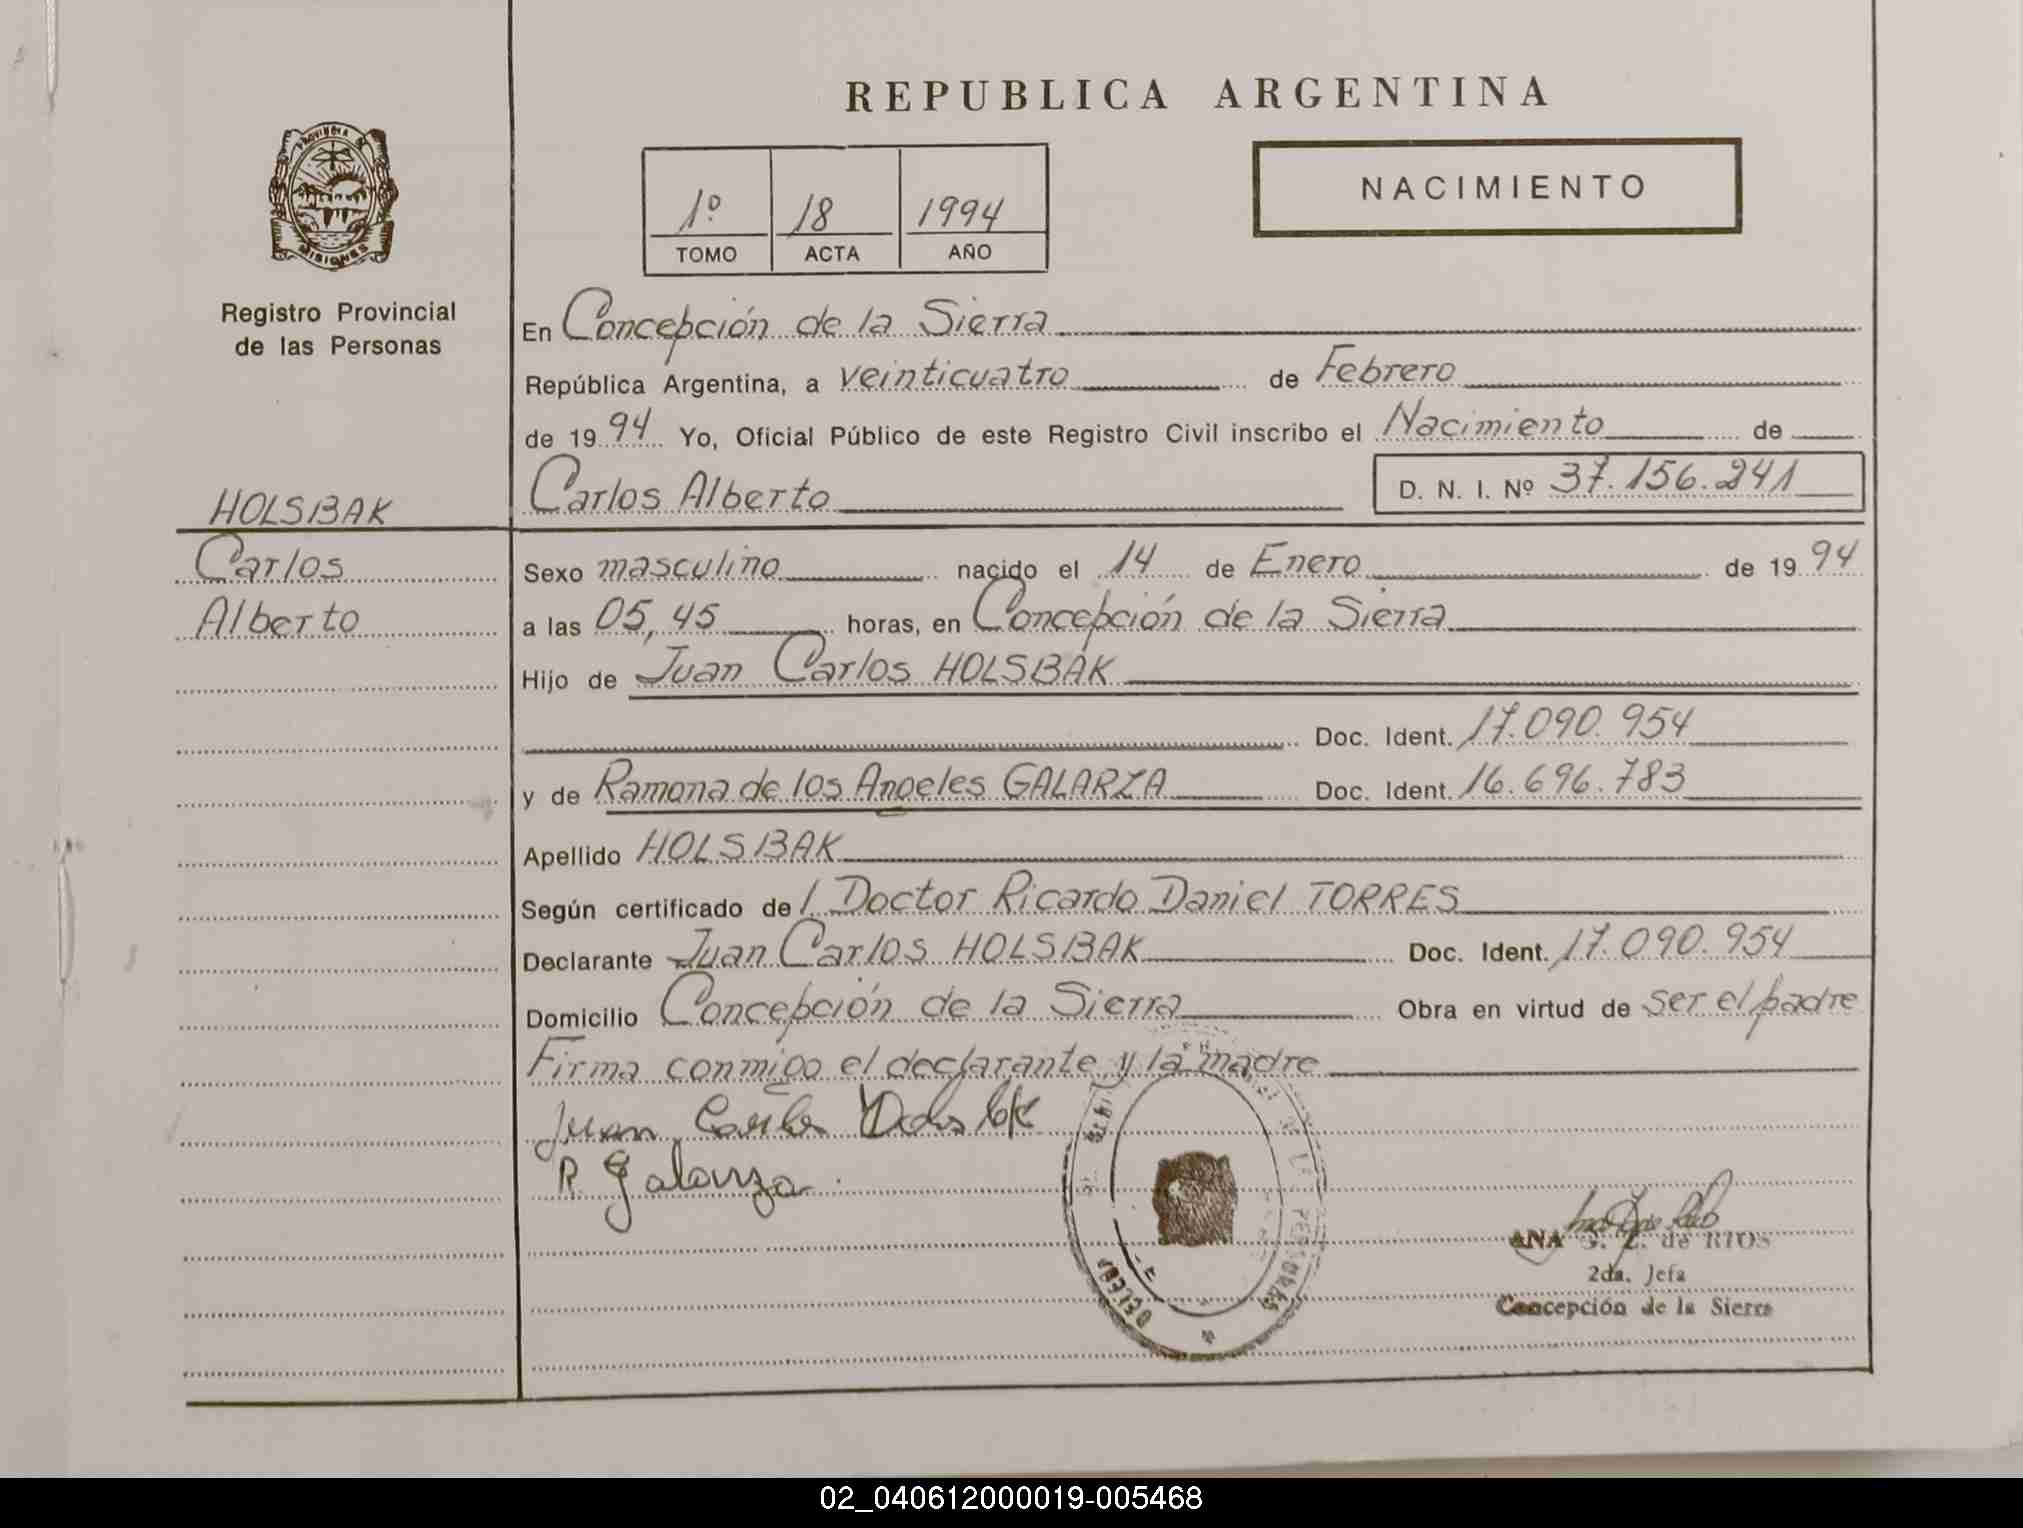 REPUBLICA ARGENTINA
PROVINCIA DE
MISIONES
NACIMIENTO
1º 18 1994
TOMO ACTA AÑO
Registro Provincial
de las Personas
En Concepción de la Sierra
República Argentina, a veinticuatro de Febrero
de 1994 Yo, Oficial Público de este Registro Civil inscribo el Nacimiento de
Carlos Alberto D. N. I. Nº 37.156.241
HOLSBAK
Carlos
Alberto
Sexo masculino nacido el 14 de Enero de 1994
a las 05,45 horas, en Concepción de la Sierra
Hijo de Juan Carlos HOLSBAK
Doc. Ident. 17.090.954
y de Ramona de los Angeles GALARZA Doc. Ident. 16.696.783
Apellido HOLSBAK
Según certificado del Doctor Ricardo Daniel TORRES
Declarante Juan Carlos HOLSBAK Doc. Ident. 17.090.954
Domicilio Concepción de la Sierra Obra en virtud de ser el padre
Firma conmigo el declarante y la madre
Juan Carlos Holsbak
R. Galarza
ANA G. Z. de RIOS
2da. Jefa
Concepción de la Sierra
02_040612000019-005468